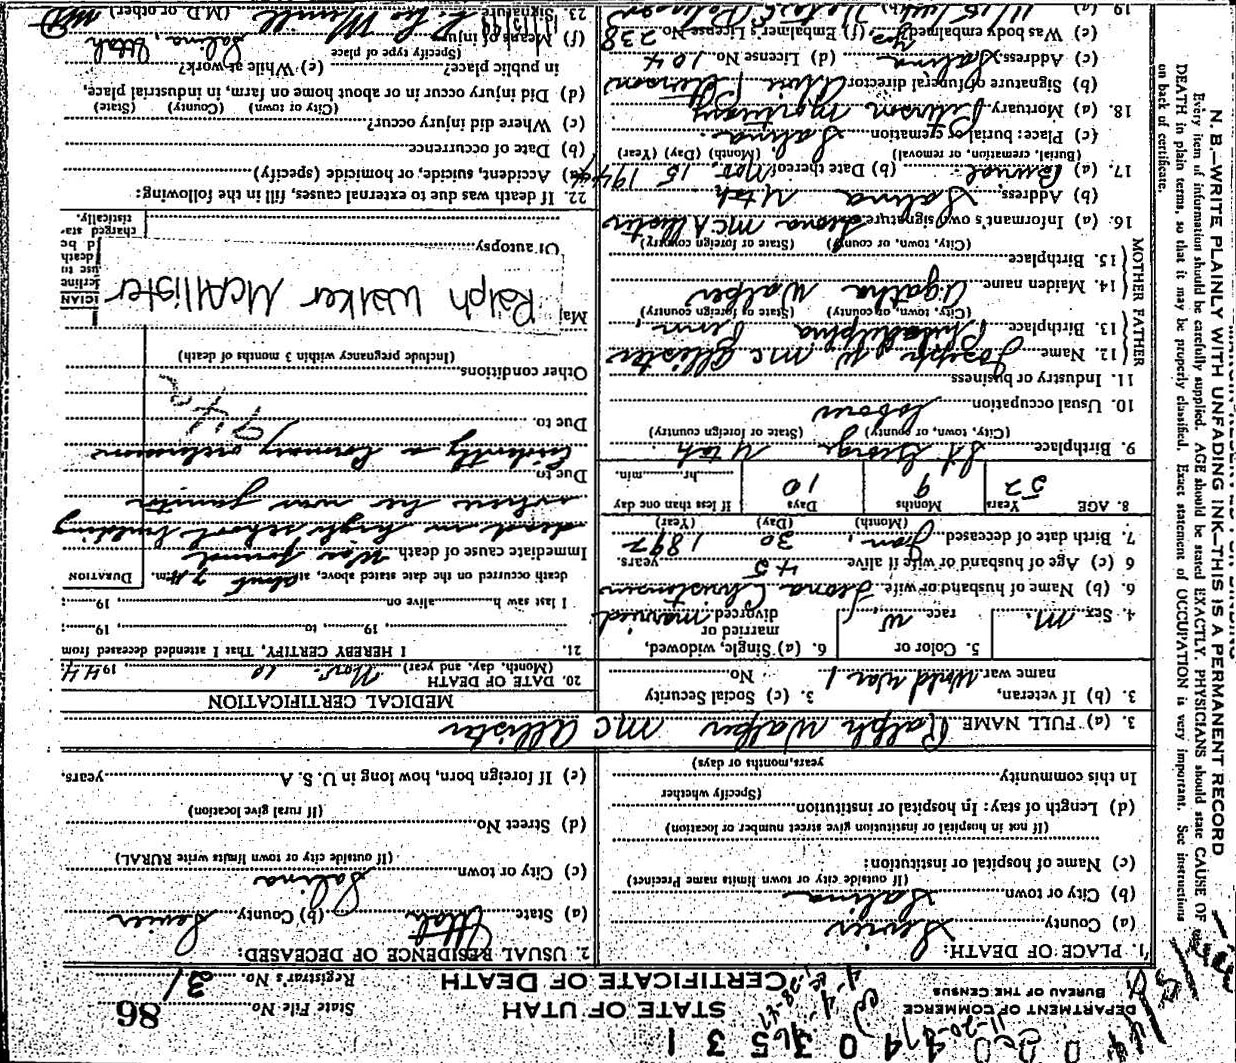 DEPARTMENT OF COMMERCE
BUREAU OF THE CENSUS
STATE OF UTAH
CERTIFICATE OF DEATH
State File No. 86
Registrar's No. 31
1. PLACE OF DEATH:
(a) County Sevier
(b) City or town Salina
(If outside city or town limits name Precinct)
(c) Name of hospital or institution:
(If not in hospital or institution give street number or location)
(d) Length of stay: In hospital or institution
(Specify whether
In this community
years, months or days)
2. USUAL RESIDENCE OF DECEASED:
(a) State Utah (b) County Sevier
(c) City or town Salina
(If outside city or town limits write RURAL)
(d) Street No.
(If rural give location)
(e) If foreign born, how long in U. S. A. years.
3. (a) FULL NAME Ralph Walker McAllister
3. (b) If veteran, name war World War 1
3. (c) Social Security No.
4. Sex M.
5. Color or race W
6. (a) Single, widowed, married or divorced married
6. (b) Name of husband or wife Leona Christensen
6 (c) Age of husband or wife if alive 45 years.
7. Birth date of deceased Jan. 30 1892
(Month) (Day) (Year)
8. AGE Years 52 Months 9 Days 10 If less than one day hr. min.
9. Birthplace St George Utah
(City, town, or county) (State or foreign country)
10. Usual occupation Laborer
11. Industry or business
FATHER
12. Name Joseph W McAllister
13. Birthplace Philadelphia Penn.
(City, town, or county) (State or foreign country)
MOTHER
14. Maiden name Agatha Walker
15. Birthplace
(City, town, or county) (State or foreign country)
16. (a) Informant's own signature Leona McAllister
(b) Address Salina Utah
17. (a) Burial (b) Date thereof Nov. 15 1944
(Burial, cremation, or removal) (Month) (Day) (Year)
(c) Place: burial or cremation Salina.
18. (a) Mortuary Peterson Mortuary
(b) Signature of funeral director
(c) Address Salina (d) License No. 104
(e) Was body embalmed? yes (f) Embalmer's License No. 238
19. (a)
MEDICAL CERTIFICATION
20. DATE OF DEATH Nov. 10, 1944
(Month, day, and year)
21. I HEREBY CERTIFY, That I attended deceased from
, 19 , to , 19 ;
I last saw h alive on , 19 ;
death occurred on the date stated above, at about 7 P.m. DURATION
Immediate cause of death Was found
dead in high school building
where he was janitor
Due to
Evidently a coronary occlusion
Due to
94a
Other conditions
(Include pregnancy within 3 months of death)
Maj
Ralph Walker McAllister
Of autopsy
22. If death was due to external causes, fill in the following:
(a) Accident, suicide, or homicide (specify)
(b) Date of occurrence
(c) Where did injury occur?
(City or town) (County) (State)
(d) Did injury occur in or about home on farm, in industrial place,
in public place? (e) While at work?
(Specify type of place
(f) Means of injury
Salina, Utah
23. Signature (M.D. or other) MD
N. B.—WRITE PLAINLY WITH UNFADING INK—THIS IS A PERMANENT RECORD
Every item of information should be carefully supplied. AGE should be stated EXACTLY. PHYSICIANS should state CAUSE OF
DEATH in plain terms, so that it may be properly classified. Exact statement of OCCUPATION is very important. See instructions
on back of certificate.